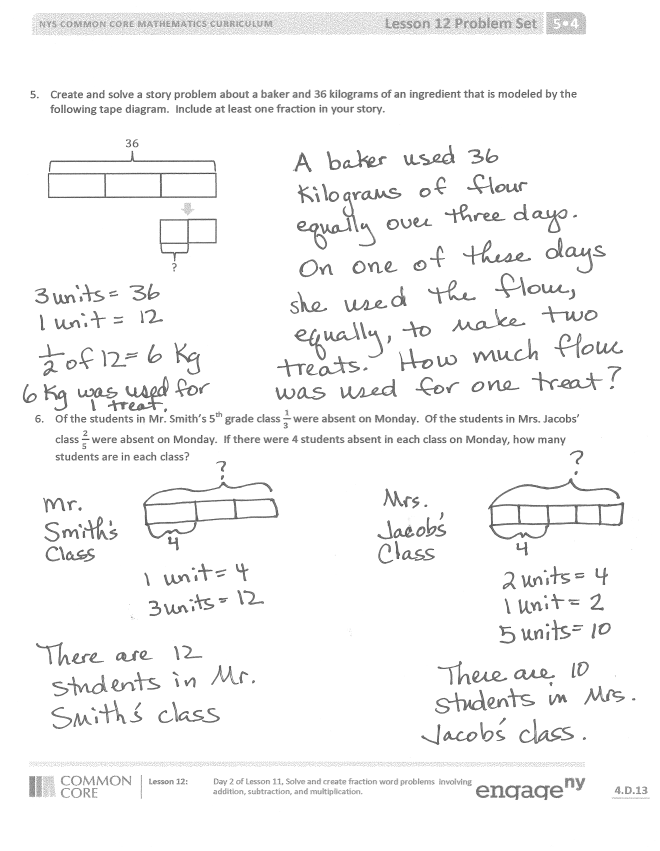 NYS COMMON CORE MATHEMATICS CURRICULUM
Lesson 12 Problem Set 5•4
5. Create and solve a story problem about a baker and 36 kilograms of an ingredient that is modeled by the
following tape diagram. Include at least one fraction in your story.
36
?
3 units = 36
1 unit = 12
1/2 of 12 = 6 Kg
6 Kg was used for
1 treat.
A baker used 36
Kilograms of flour
equally over three days.
On one of these days
she used the flour,
equally, to make two
treats. How much flour
was used for one treat?
6. Of the students in Mr. Smith's 5th grade class 1/3 were absent on Monday. Of the students in Mrs. Jacobs'
class 2/5 were absent on Monday. If there were 4 students absent in each class on Monday, how many
students are in each class?
Mr.
Smith's
Class
?
4
1 unit = 4
3 units = 12
There are 12
students in Mr.
Smith's class
Mrs.
Jacob's
Class
?
4
2 units = 4
1 unit = 2
5 units = 10
There are 10
students in Mrs.
Jacob's class.
COMMON
CORE
Lesson 12:
Day 2 of Lesson 11, Solve and create fraction word problems involving
addition, subtraction, and multiplication.
engageny
4.D.13